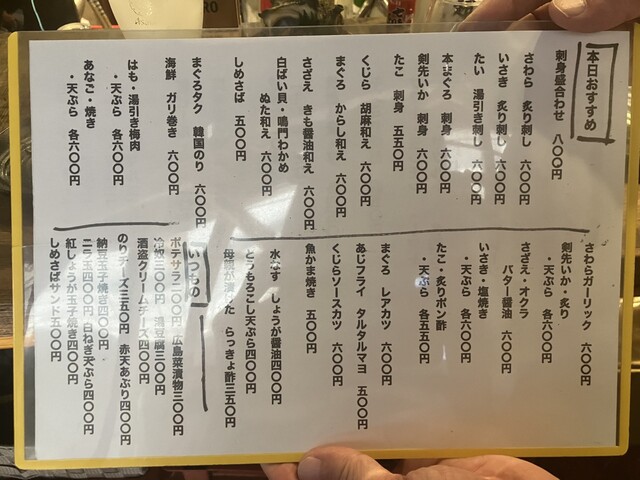 本日おすすめ
刺身盛合わせ 八〇〇円
さわら 炙り刺し 六〇〇円
いさき 炙り刺し 六〇〇円
たい 湯引き刺し 六〇〇円
本まぐろ 刺身 六〇〇円
剣先いか 刺身 六〇〇円
たこ 刺身 五五〇円
くじら 胡麻和え 六〇〇円
まぐろ からし和え 六〇〇円
さざえ きも醤油和え 六〇〇円
白ばい貝・鳴門わかめ
ぬた和え 六〇〇円
しめさば 五〇〇円
まぐろタク 韓国のり 六〇〇円
海鮮 ガリ巻き 六〇〇円
はも・湯引き梅肉
・天ぷら 各六〇〇円
あなご・焼き
・天ぷら 各六〇〇円
さわらガーリック 六〇〇円
剣先いか・炙り
・天ぷら 各六〇〇円
さざえ・オクラ
バター醤油 六〇〇円
いさき・塩焼き
・天ぷら 各六〇〇円
たこ・炙りポン酢
・天ぷら 各五五〇円
まぐろ レアカツ 六〇〇円
あじフライ タルタルマヨ 五〇〇円
くじらソースカツ 六〇〇円
魚かま焼き 五〇〇円
水なす しょうが醤油四〇〇円
とうもろこし天ぷら四〇〇円
母親が漬けた らっきょ酢三五〇円
いつもの
ポテサラ二〇〇円 広島菜漬物三〇〇円
冷奴三〇〇円 湯豆腐三〇〇円
酒盗クリームチーズ四〇〇円
のりチーズ三五〇円 赤天あぶり四〇〇円
納豆玉子焼き四〇〇円
ニラ玉四〇〇円 白ねぎ天ぷら四〇〇円
紅しょうが玉子焼き四〇〇円
しめさばサンド五〇〇円